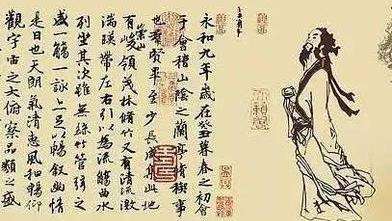 永和九年歲在癸丑暮春之初會
于會稽山陰之蘭亭脩稧事
也羣賢畢至少長咸集此地
崇山
有峻領茂林脩竹又有清流激
湍暎帶左右引以為流觴曲水
列坐其次雖無絲竹管弦之
盛一觴一詠亦足以暢敘幽情
是日也天朗氣清惠風和暢仰
觀宇宙之大俯察品類之盛